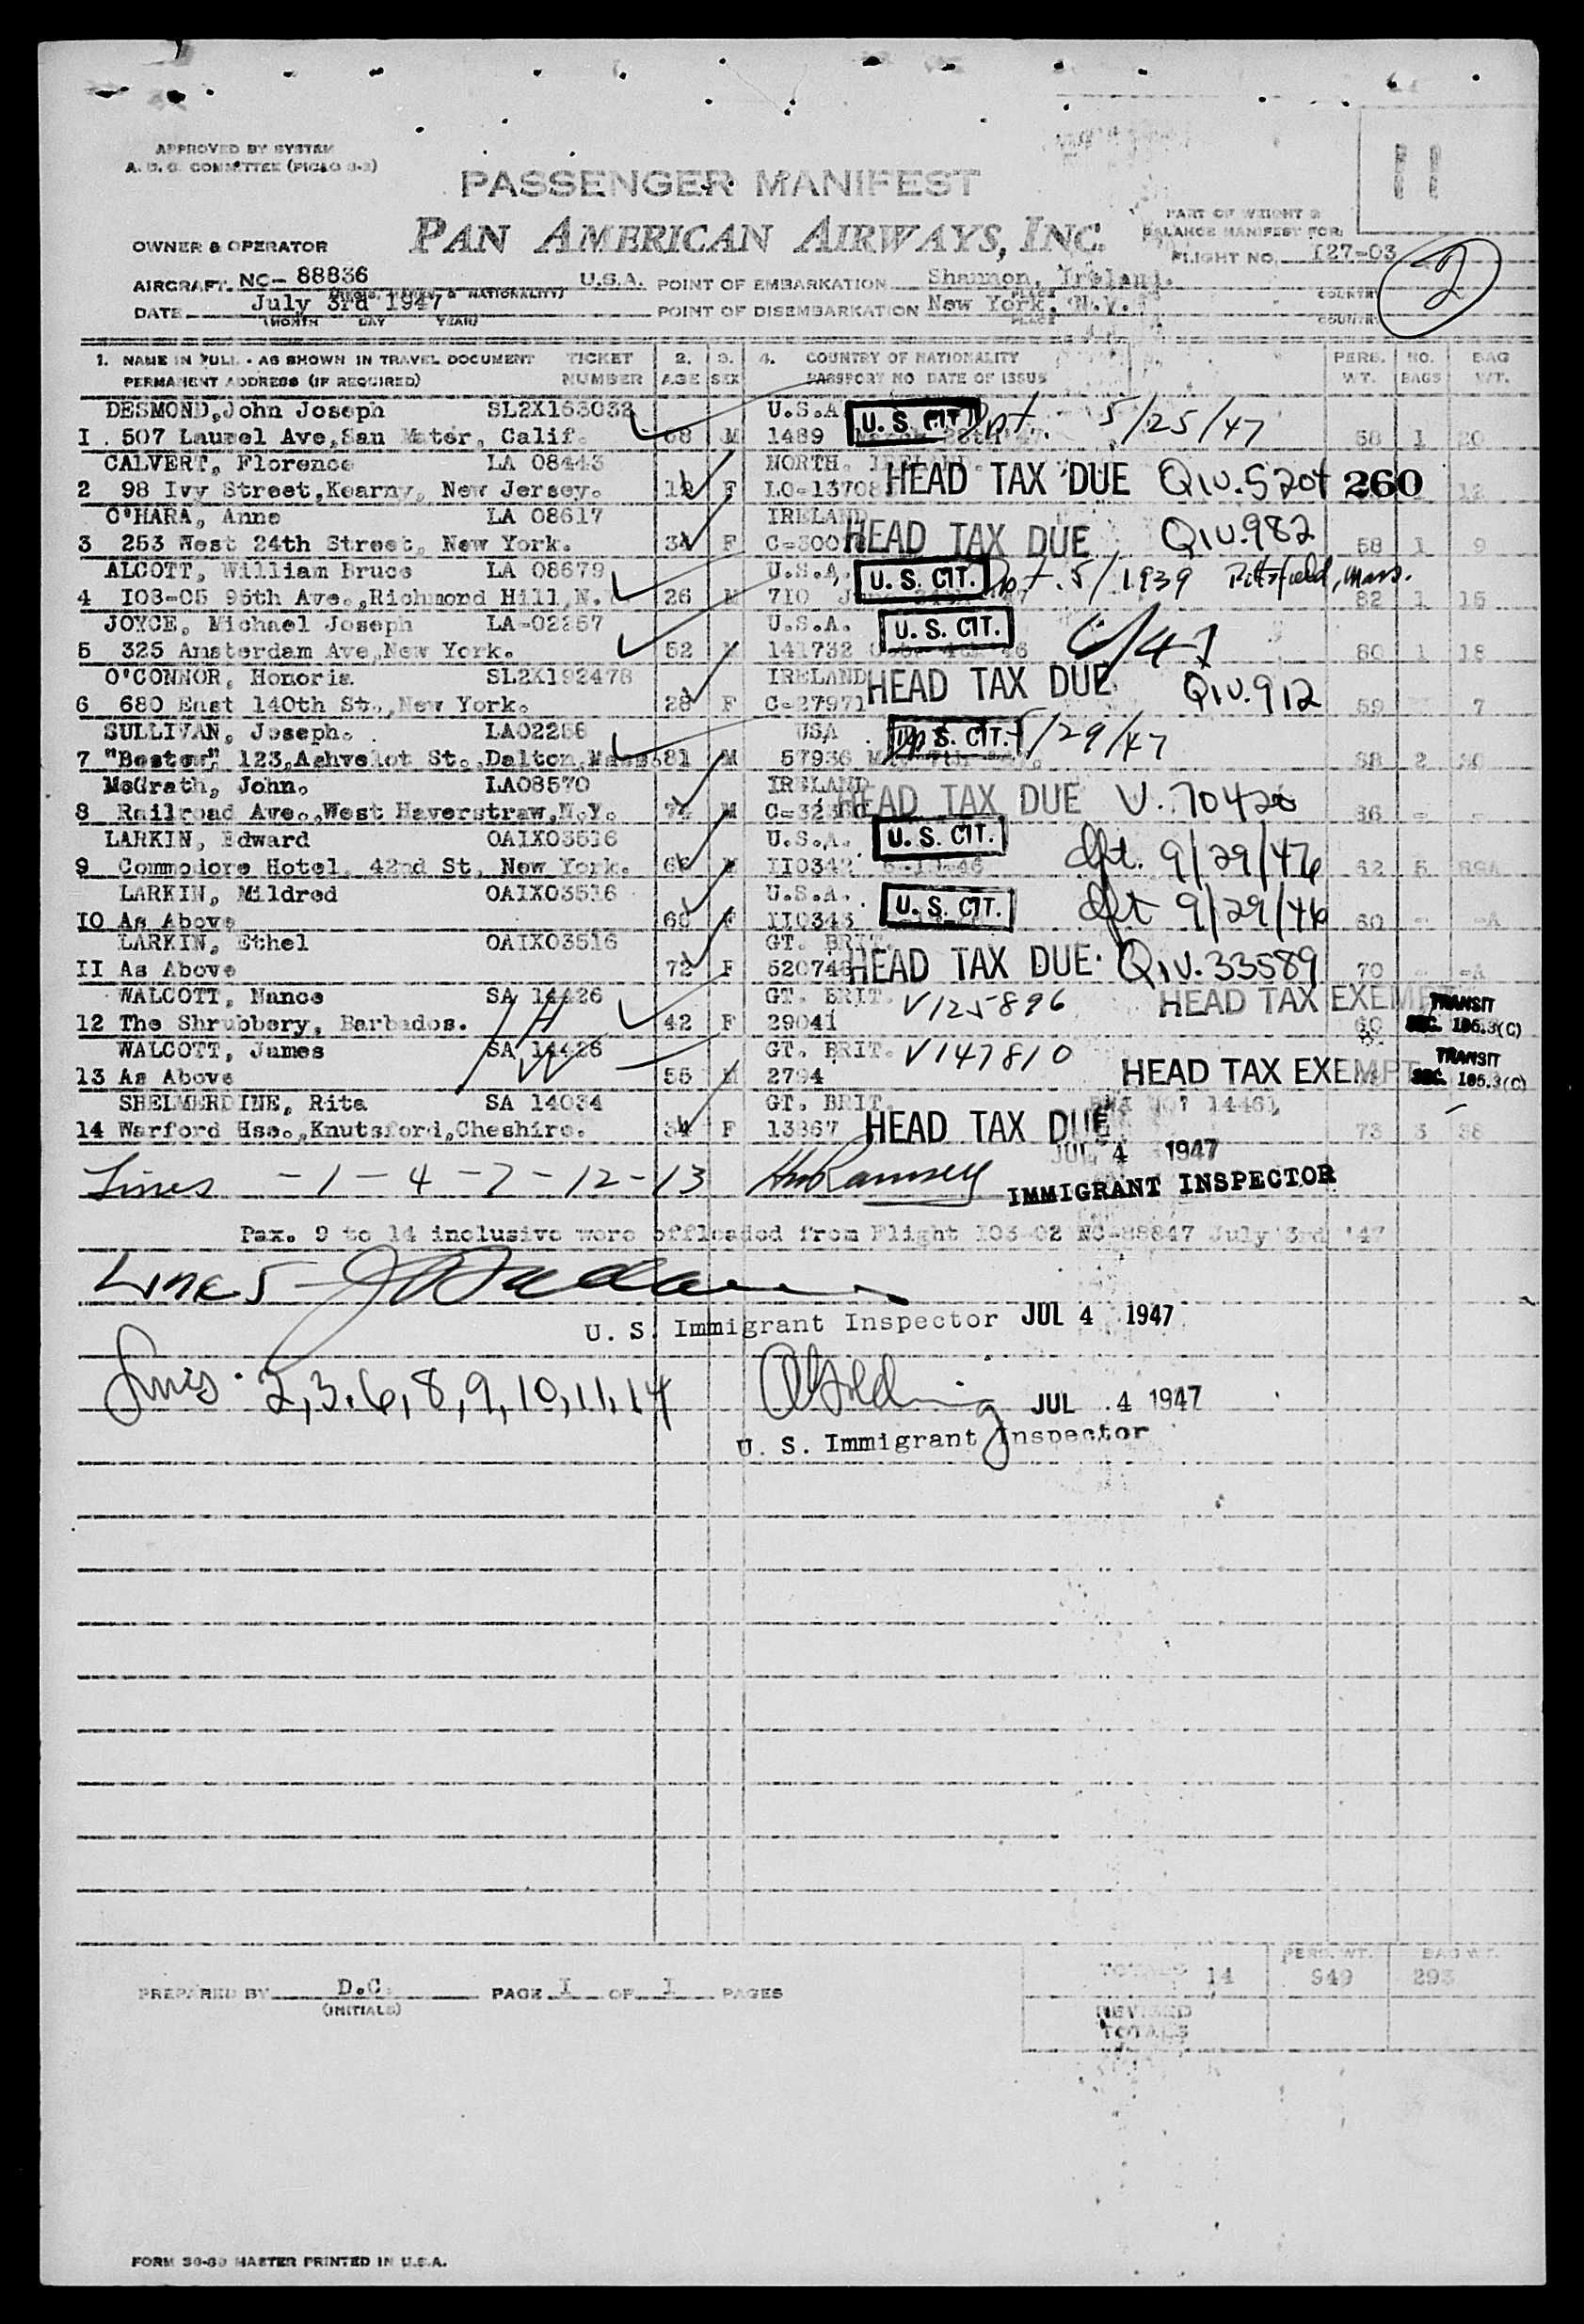 APPROVED BY SYSTEM
A. D. C. COMMITTEE (PICAO 3-3)
PASSENGER MANIFEST
PAN AMERICAN AIRWAYS, INC.
11
PART OF WEIGHT &
BALANCE MANIFEST FOR:
FLIGHT NO. I27-03
2
OWNER & OPERATOR
AIRCRAFT NC- 88836 U.S.A. POINT OF EMBARKATION Shannon, Ireland.
& NATIONALITY) PLACE COUNTRY
DATE July 3rd 1947 POINT OF DISEMBARKATION New York, N.Y.
(MONTH DAY YEAR) PLACE COUNTRY
1. NAME IN FULL - AS SHOWN IN TRAVEL DOCUMENT TICKET 2. 3. 4. COUNTRY OF NATIONALITY PERS. NO. BAG
PERMANENT ADDRESS (IF REQUIRED) NUMBER AGE SEX PASSPORT NO DATE OF ISSUE WT. BAGS WT.
DESMOND, John Joseph SL2X163032 U.S.A. U. S. CIT. Dpt. 5/25/47
I . 507 Laurel Ave, San Mater, Calif. 68 M 1489 58 1 20
CALVERT, Florence LA 08443 NORTH. IRELAND. HEAD TAX DUE QIV.5204 260
2 98 Ivy Street, Kearny, New Jersey. F LO-13708 12
O'HARA, Anne LA 08617 IRELAND HEAD TAX DUE QIV.982
3 253 West 24th Street, New York. 34 F 58 1 9
ALCOTT, William Bruce LA 08679 U.S.A. U. S. CIT. Dpt. 5/1939 Pittsfield, Mass.
4 I03-05 95th Ave., Richmond Hill, N. 26 M 710 82 1 15
JOYCE, Michael Joseph LA-02257 U.S.A. U. S. CIT. 6/47
5 325 Amsterdam Ave, New York. 52 M 141732 60 1 18
O'CONNOR, Honoria SL2X192478 IRELAND HEAD TAX DUE QIV.912
6 680 East 140th St., New York. 28 F C-27971 59 7
SULLIVAN, Joseph. LA02256 USA U. S. CIT. /29/47
7 "Boston", 123, Ashvelot St., Dalton, Mass. 81 M 57936 68 2 30
McGrath, John. LA08570 IRELAND HEAD TAX DUE V. 70420
8 Railroad Ave., West Haverstraw, N.Y. 74 M 86 - -
LARKIN, Edward OAIX03516 U.S.A. U. S. CIT. dpt. 9/29/46
9 Commodore Hotel, 42nd St, New York. M II0342 62 5 89A
LARKIN, Mildred OAIX03516 U.S.A. U. S. CIT. dpt 9/29/46
IO As Above 60 F II0343 60 - -A
LARKIN, Ethel OAIX03516 GT. BRIT. HEAD TAX DUE. QIV.33589
II As Above 72 F 520748 70 - -A
WALCOTT, Nance SA 14426 GT. BRIT. V125896 HEAD TAX EXEMPT TRANSIT
12 The Shrubbery, Barbados. 42 F 29041 60 SEC. 105.3(C)
WALCOTT, James SA 14426 GT. BRIT. V147810 HEAD TAX EXEMPT TRANSIT
13 As Above 55 M 2794 SEC. 105.3(C)
SHELMERDINE, Rita SA 14034 GT. BRIT. HEAD TAX DUE
14 Warford Hse., Knutsford, Cheshire. 34 F 13867 73 3 38
JUL 4 1947
Lines - 1 - 4 - 7 - 12 - 13 Ramsey IMMIGRANT INSPECTOR
Pax. 9 to 14 inclusive were offloaded from Flight 103-02 NC-88847 July 3rd '47
Line 5 -
U. S. Immigrant Inspector JUL 4 1947
Lines. 2,3,6,8,9,10,11,14 JUL 4 1947
U. S. Immigrant Inspector
TOTALS 14 PERS. WT. 949 BAG WT. 293
REVISED
TOTALS
PREPARED BY D.C. PAGE I OF 1 PAGES
(INITIALS)
FORM 36-60 MASTER PRINTED IN U.S.A.